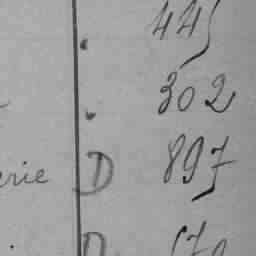 445
. 302
erie D 897
D